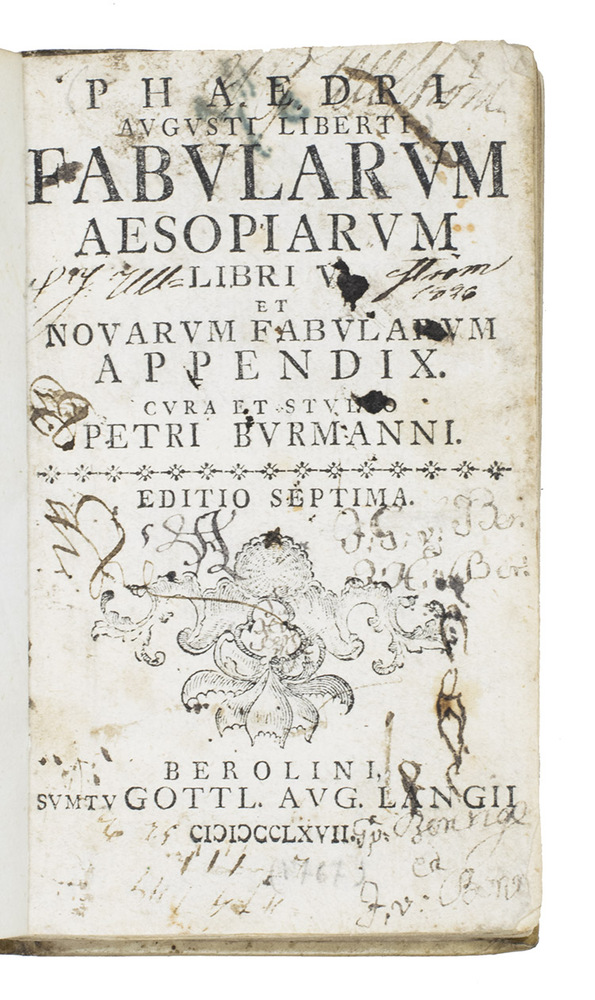 PHAEDRI
AVGVSTI LIBERTI
FABVLARVM
AESOPIARVM
LIBRI V.
1826
ET
NOVARVM FABVLARVM
APPENDIX.
CVRA ET STVDIO
PETRI BVRMANNI.
EDITIO SEPTIMA.
J. G. v. Ber.
BEROLINI,
SVMTV GOTTL. AVG. LANGII
CIƆIƆCCLXVII.
(1767)
J. v: